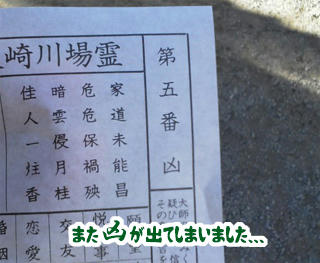 第五番凶
大師
疑ひ
霊場川崎
家道未能昌
危危保禍殃
暗雲侵月桂
佳人一炷香
願望
悦事
交友
恋愛
また凶が出てしまいました、、、